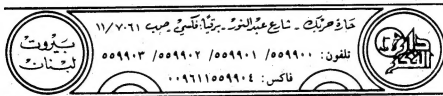 دار الفكر
حَارَة حرَيك - شارع عَبد النّور - برقيًا: فكسي - صَب ١١/٧٠٦١
تلفون: ٥٥٩٩٠٠/ ٥٥٩٩٠١/ ٥٥٩٩٠٢/ ٥٥٩٩٠٣
فاكس: ٠٠٩٦١١٥٥٩٩٠٤
بَيروت
لبنان